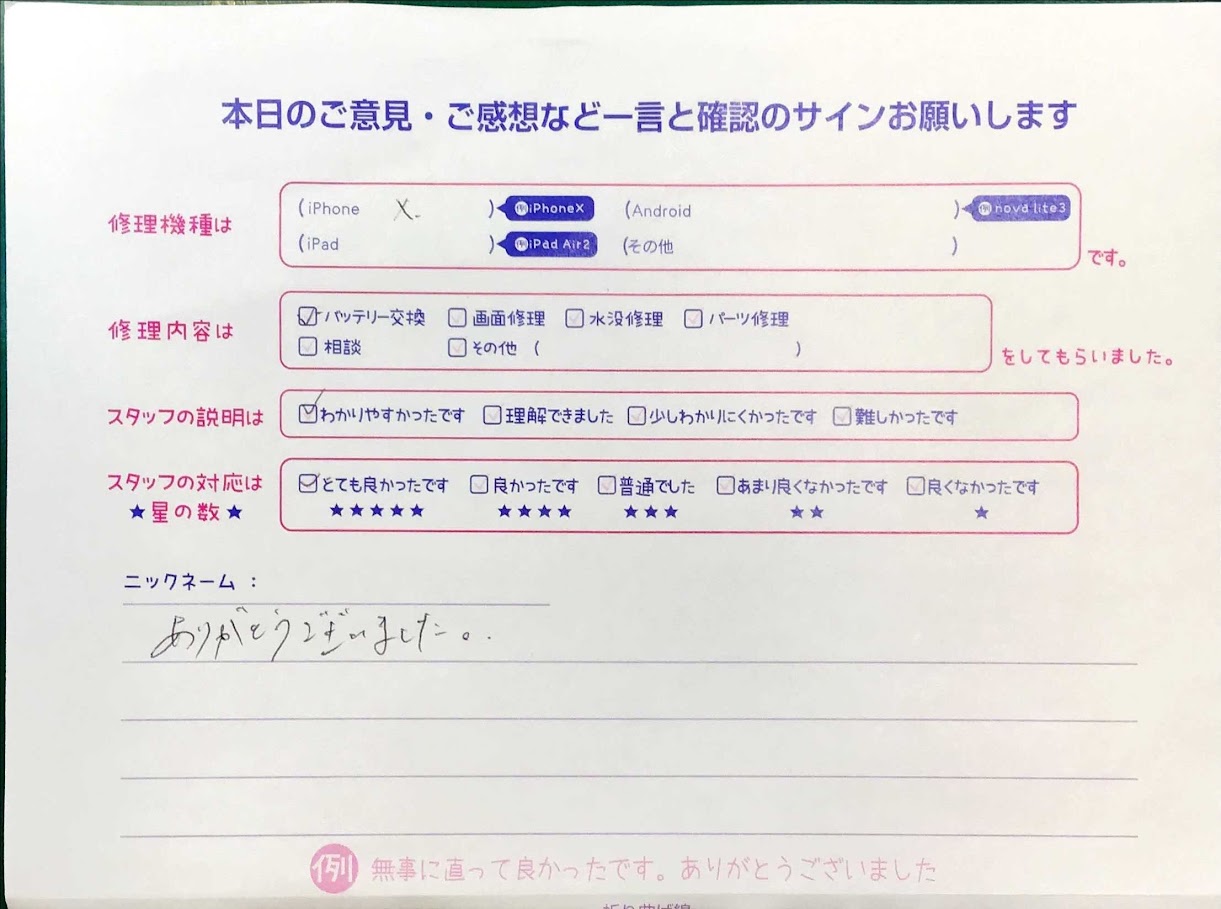 本日のご意見・ご感想など一言と確認のサインお願いします
修理機種は
(iPhone X. ) 例iPhoneX (Android ) 例nova lite3
(iPad ) 例iPad Air2 (その他 )
です。
修理内容は
バッテリー交換 画面修理 水没修理 パーツ修理
相談 その他 ( )
をしてもらいました。
スタッフの説明は
わかりやすかったです 理解できました 少しわかりにくかったです 難しかったです
スタッフの対応は
★星の数★
とても良かったです 良かったです 普通でした あまり良くなかったです 良くなかったです
★★★★★ ★★★★ ★★★ ★★ ★
ニックネーム :
ありがとうございました。.
例 無事に直って良かったです。ありがとうございました